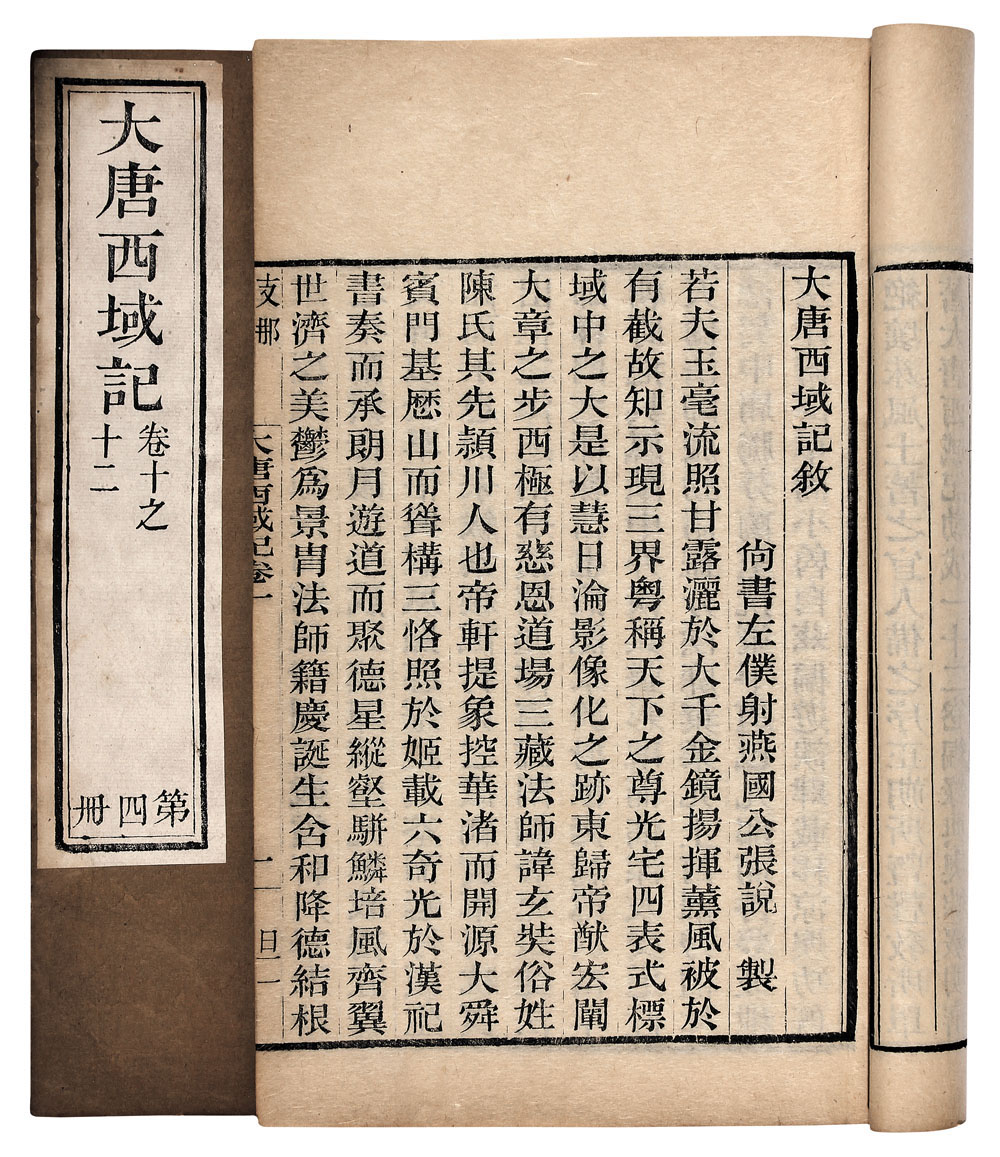 大唐西域記
卷十之
十二
第四冊
大唐西域記敘
尙書左僕射燕國公張說 製
若夫玉毫流照甘露灑於大千金鏡揚揮薰風被於
有截故知示現三界粤稱天下之尊光宅四表式標
域中之大是以慧日淪影像化之跡東歸帝猷宏闡
大章之步西極有慈恩道場三藏法師諱玄奘俗姓
陳氏其先潁川人也帝軒提象控華渚而開源大舜
賓門基歷山而聳構三恪照於姬載六奇光於漢祀
書奏而承朗月遊道而聚德星縱壑駢鱗培風齊翼
世濟之美鬱爲景冑法師籍慶誕生含和降德結根
支那
大唐西域記卷一